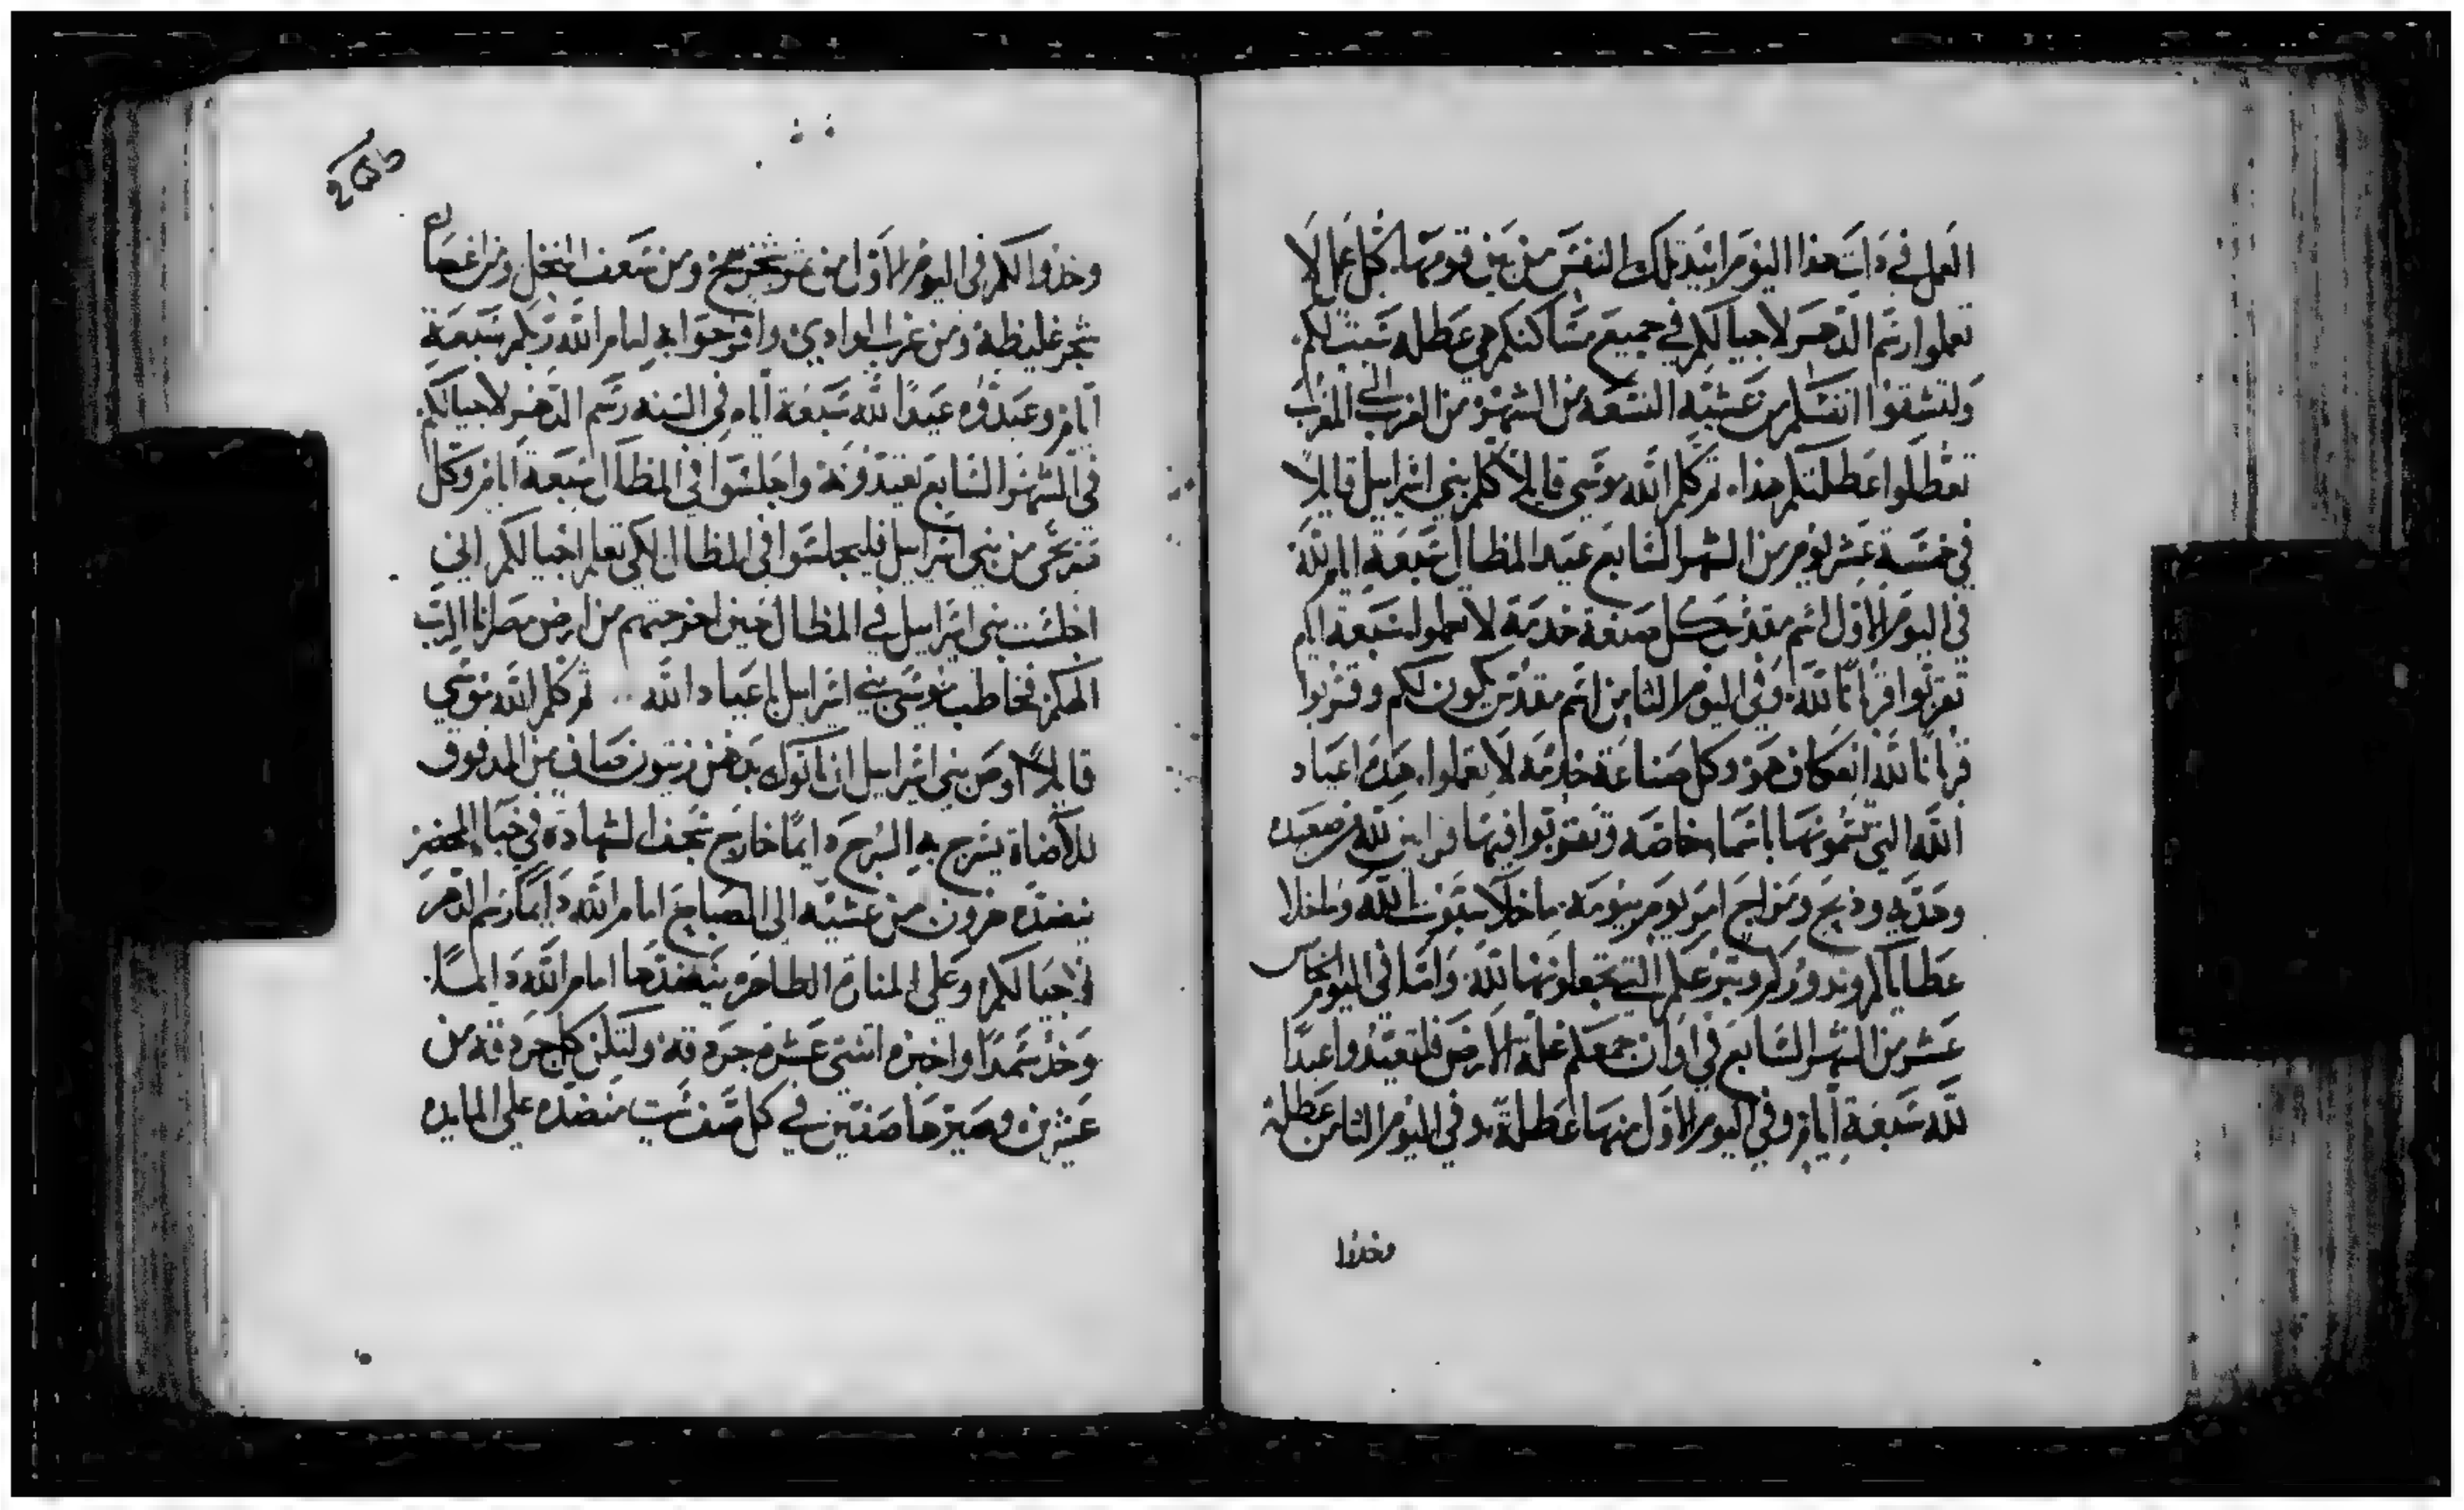 العمل في ذات هذا اليوم ابيد تلك النفس من بين قومها. كل عمل لا
تعملوا رسم الدهر لاجيالكم في جميع مساكنكم هي عطلة سبت لكم.
ولتشقوا انفسكم من عشية التسعة من الشهر من الغرب الى المغرب
تعطلوا عطلتكم هذا. ثم كلم الله موسى قايلا كلم بني اسراييل قايلا
في خمسة عشر يوم من الشهر السابع عيد المظال سبعة ايام لله
في اليوم الاول اسم مقدس كل صنعة خدمة لا تعملوا. سبعة ايام
تقربوا قربانا لله. وفي اليوم الثامن اسم مقدس يكون لكم وقربوا
قربانا لله انعكاف هو وكل صناعة خدمة لا تعملوا. هذه اعياد
الله التي تسمونها باسما خاصه وتقربوا فيها قرابين لله من صعيده
وهديه وذبيح ومزاج امر يوم بيومه. ما خلا سبوت الله وما خلا
عطاياكم ونذوركم وتبرعكم التي تجعلونها لله. واما في اليوم الخامس
عشر من الشهر السابع في اوان جمعكم غلة الارض فلتعيدوا عيدا
لله سبعة ايام وفي اليوم الاول منها عطلة وفي اليوم الثامن عطلة
وخذوا
وخذوا لكم في اليوم الاول من ثمر شجر بهج ومن سعف النخل ومن اغصان
شجر غليظة ومن غرب الوادي وافرحوا به امام الله ربكم سبعة
ايام وعيدوه عيدا لله سبعة ايام في السنه رسم الدهر لاجيالكم
في الشهر السابع تعيدونه واجلسوا في المظال سبعة ايام وكل
صريحي من بني اسراييل فليجلسوا في المظال لكي تعلم اجيالكم اني
اجلست بني اسراييل في المظال حين اخرجتهم من ارض مصر انا الرب
الهكم فخاطب موسى بني اسراييل باعياد الله .. ثم كلم الله موسى
قايلا اوص بني اسراييل ان ياتوك بدهن زيتون صاف من المدقوق
للاضاة يسرج به السرج دايما خارج سجف الشهادة في خبا المحضر
ينضده هرون من عشيه الى الصباح امام الله دايما رسم الدهر
في اجيالكم وعلى المنارة الطاهره ينضدها امام الله دايما.
وخذ سمدا واخبزه اثنتي عشرة جردقة ولتكن كل جردقه من
عشرين وصيرها صفين في كل صف ست منضده على المايده